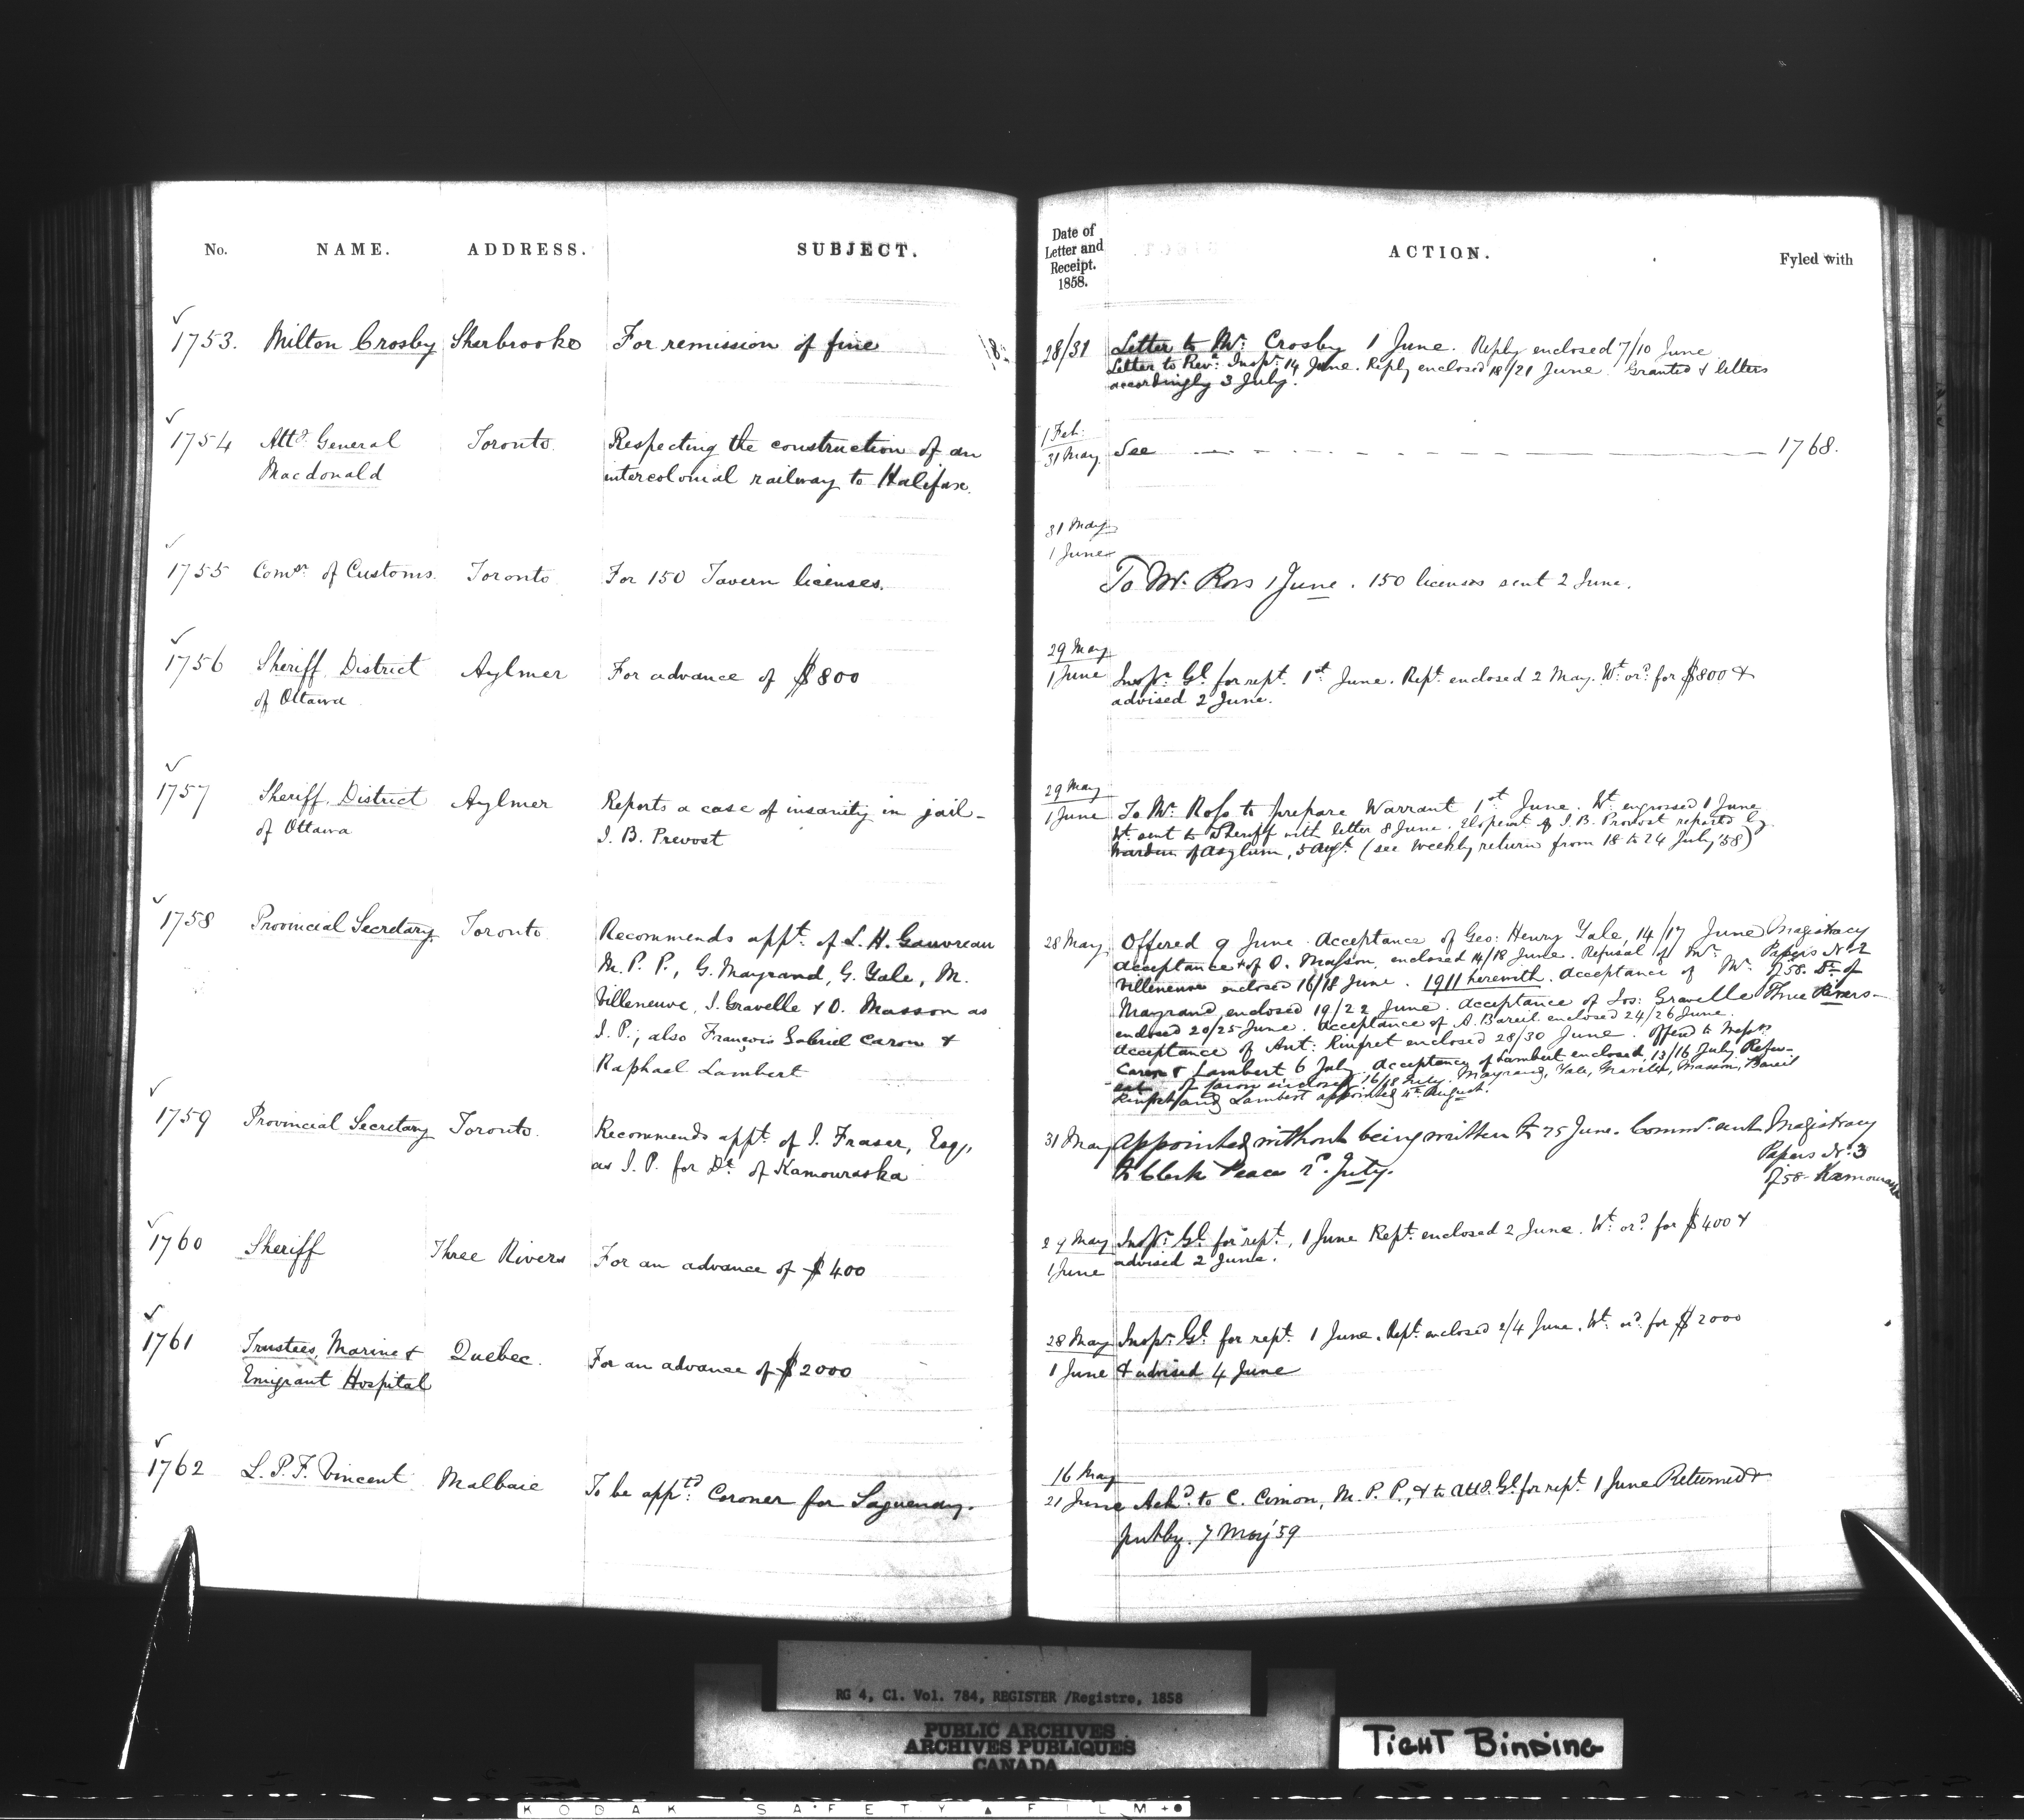 No. NAME. ADDRESS. SUBJECT.
Date of
Letter and
Receipt.
1858.
ACTION. Fyled with
1753. Milton Crosby Sherbrooke For remission of fine
28/31 Letter to Mr. Crosby 1 June. Reply enclosed 7/10 June
Letter to Revd. Inspr. 14 June. Reply enclosed 18/21 June. Granted & letters
accordingly 3 July.
1754 Atty. General Toronto. Respecting the construction of an
Macdonald intercolonial railway to Halifax.
1 Feb.
31 May. See 1768.
1755 Comsr. of Customs. Toronto For 150 Tavern licenses.
31 May
1 June
To Mr. Ross 1 June. 150 licenses sent 2 June.
1756 Sheriff, District Aylmer For advance of $800
of Ottawa
29 May
1 June Inspr. Gl. for rept. 1st June. Rept. enclosed 2 May. Wt. ord. for $800 &
advised 2 June.
1757 Sheriff, District Aylmer Reports a case of insanity in jail -
of Ottawa J. B. Prevost
29 May
1 June To Mr. Ross to prepare Warrant 1st June. Wt. engrossed 1 June
Wt. sent to Sheriff with letter 8 June. Elopemt. of J. B. Provost reported by
Warden of Asylum, 5 Augt. (see weekly return from 18 to 24 July '58)
1758 Provincial Secretary Toronto. Recommends appt. of L. H. Gauvreau
M. P. P., G. Mayrand, G. Yale, M.
Villeneuve, J. Gravelle & O. Masson as
J. P.; also François Gabriel Caron &
Raphael Lambert
28 May Offered 9 June. Acceptance of Geo: Henry Yale, 14/17 June Magistracy
acceptance of O. Masson, enclosed 14/18 June. Refusal of Mr. Papers No. 2
Villeneuve enclosed 16/18 June. 1911 herewith. Acceptance of Mr. J58. Dt. of
Mayrand, enclosed 19/22 June. Acceptance of Jos: Gravelle Three Rivers-
enclosed 20/25 June. Acceptance of A. Bareil enclosed 24/26 June.
Acceptance of Ant: Rinfret enclosed 28/30 June. Offered to Messrs.
Caron & Lambert 6 July. Acceptance of Lambert enclosed, 13/16 July. Refu-
sal of Caron enclosed 16/18 July. Mayrand, Yale, Gravelle, Masson, Bareil
Rinfret and Lambert appointed 4th August.
1759 Provincial Secretary Toronto. Recommends appt. of J. Fraser, Esq.,
as J. P. for Dt. of Kamouraska
31 May Appointed without being written to 25 June. Commn. sent Magistracy
to Clerk Peace 2d. July. Papers No. 3
J58- Kamouraska
1760 Sheriff Three Rivers For an advance of $400
29 May Inspr. Gl. for rept., 1 June Rept. enclosed 2 June. Wt. ord. for $400 &
1 June advised 2 June.
1761 Trustees, Marine & Quebec. For an advance of $2000
Emigrant Hospital
28 May Inspr. Gl. for rept. 1 June. Rept. enclosed 2/4 June. Wt. ord. for $2000
1 June & advised 4 June
1762 L. P. F. Vincent Malbaie To be apptd. Coroner for Saguenay.
16 May
21 June Ackd. to C. Cimon, M. P. P., & to Atty. Gl. for rept. 1 June Returned &
put by. 7 May '59
RG 4, Cl. Vol. 784, REGISTER /Registre, 1858
PUBLIC ARCHIVES
ARCHIVES PUBLIQUES
CANADA
TIGHT BINDING
KODAK SAFETY FILM